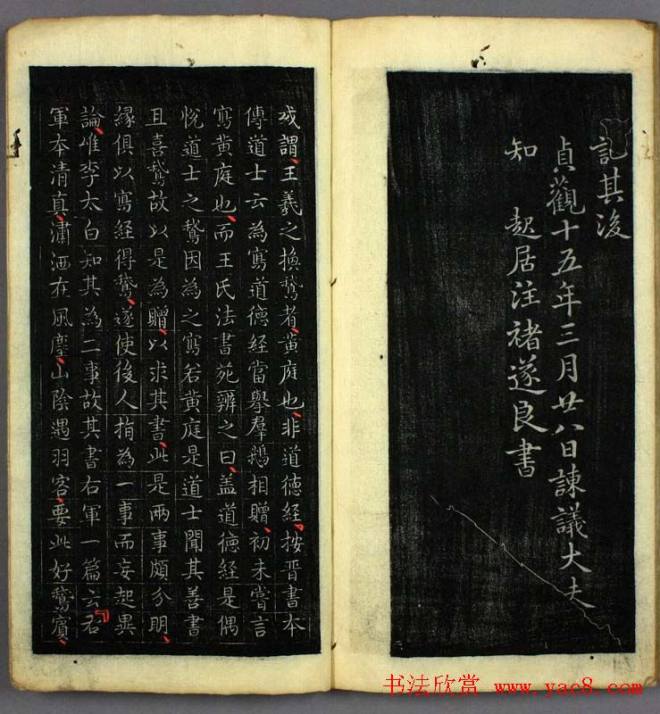 記其後
貞觀十五年三月廿八日諫議大夫
知 起居注褚遂良書
或謂王羲之換鵞者黃庭也非道德經按晉書本
傳道士云為寫道德經當舉羣鵝相贈初未嘗言
寫黃庭也而王氏法書苑辨之曰蓋道德經是偶
悅道士之鵞因為之寫若黃庭是道士聞其善書
且喜鵞故以是為贈以求其書此是兩事頗分明
緣俱以寫經得鵞遂使後人指為一事而妄起異
論唯李太白知其為二事故其書右軍一篇云右
軍本清真瀟洒在風塵山陰遇羽客要此好鵞賓
书法欣赏 www.yac8.com